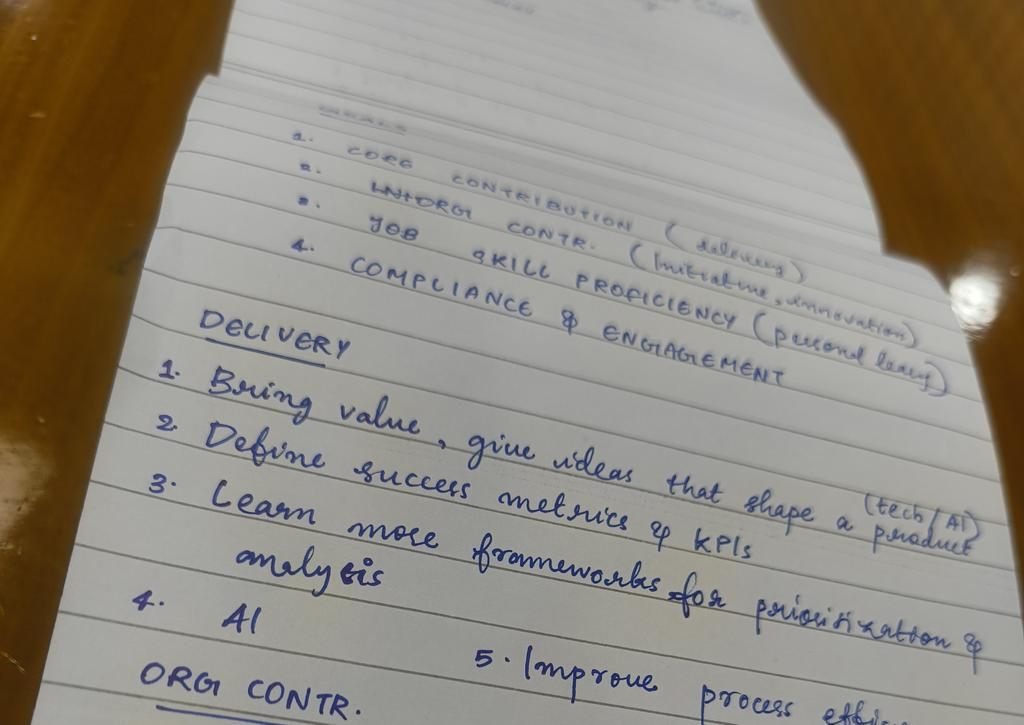 1. CORG CONTRIBUTION (delivery)
2. ORG CONTR. (Initiative, innovation)
3. JOB SKILL PROFICIENCY (personal
4. COMPLIANCE & ENGAGEMENT
DELIVERY
1. Bring value, give ideas that shape a product (tech/AI)
2. Define success metrics & KPIs
3. Learn more frameworks for prioritization &
analysis
4. AI
5. Improve process
ORG CONTR.